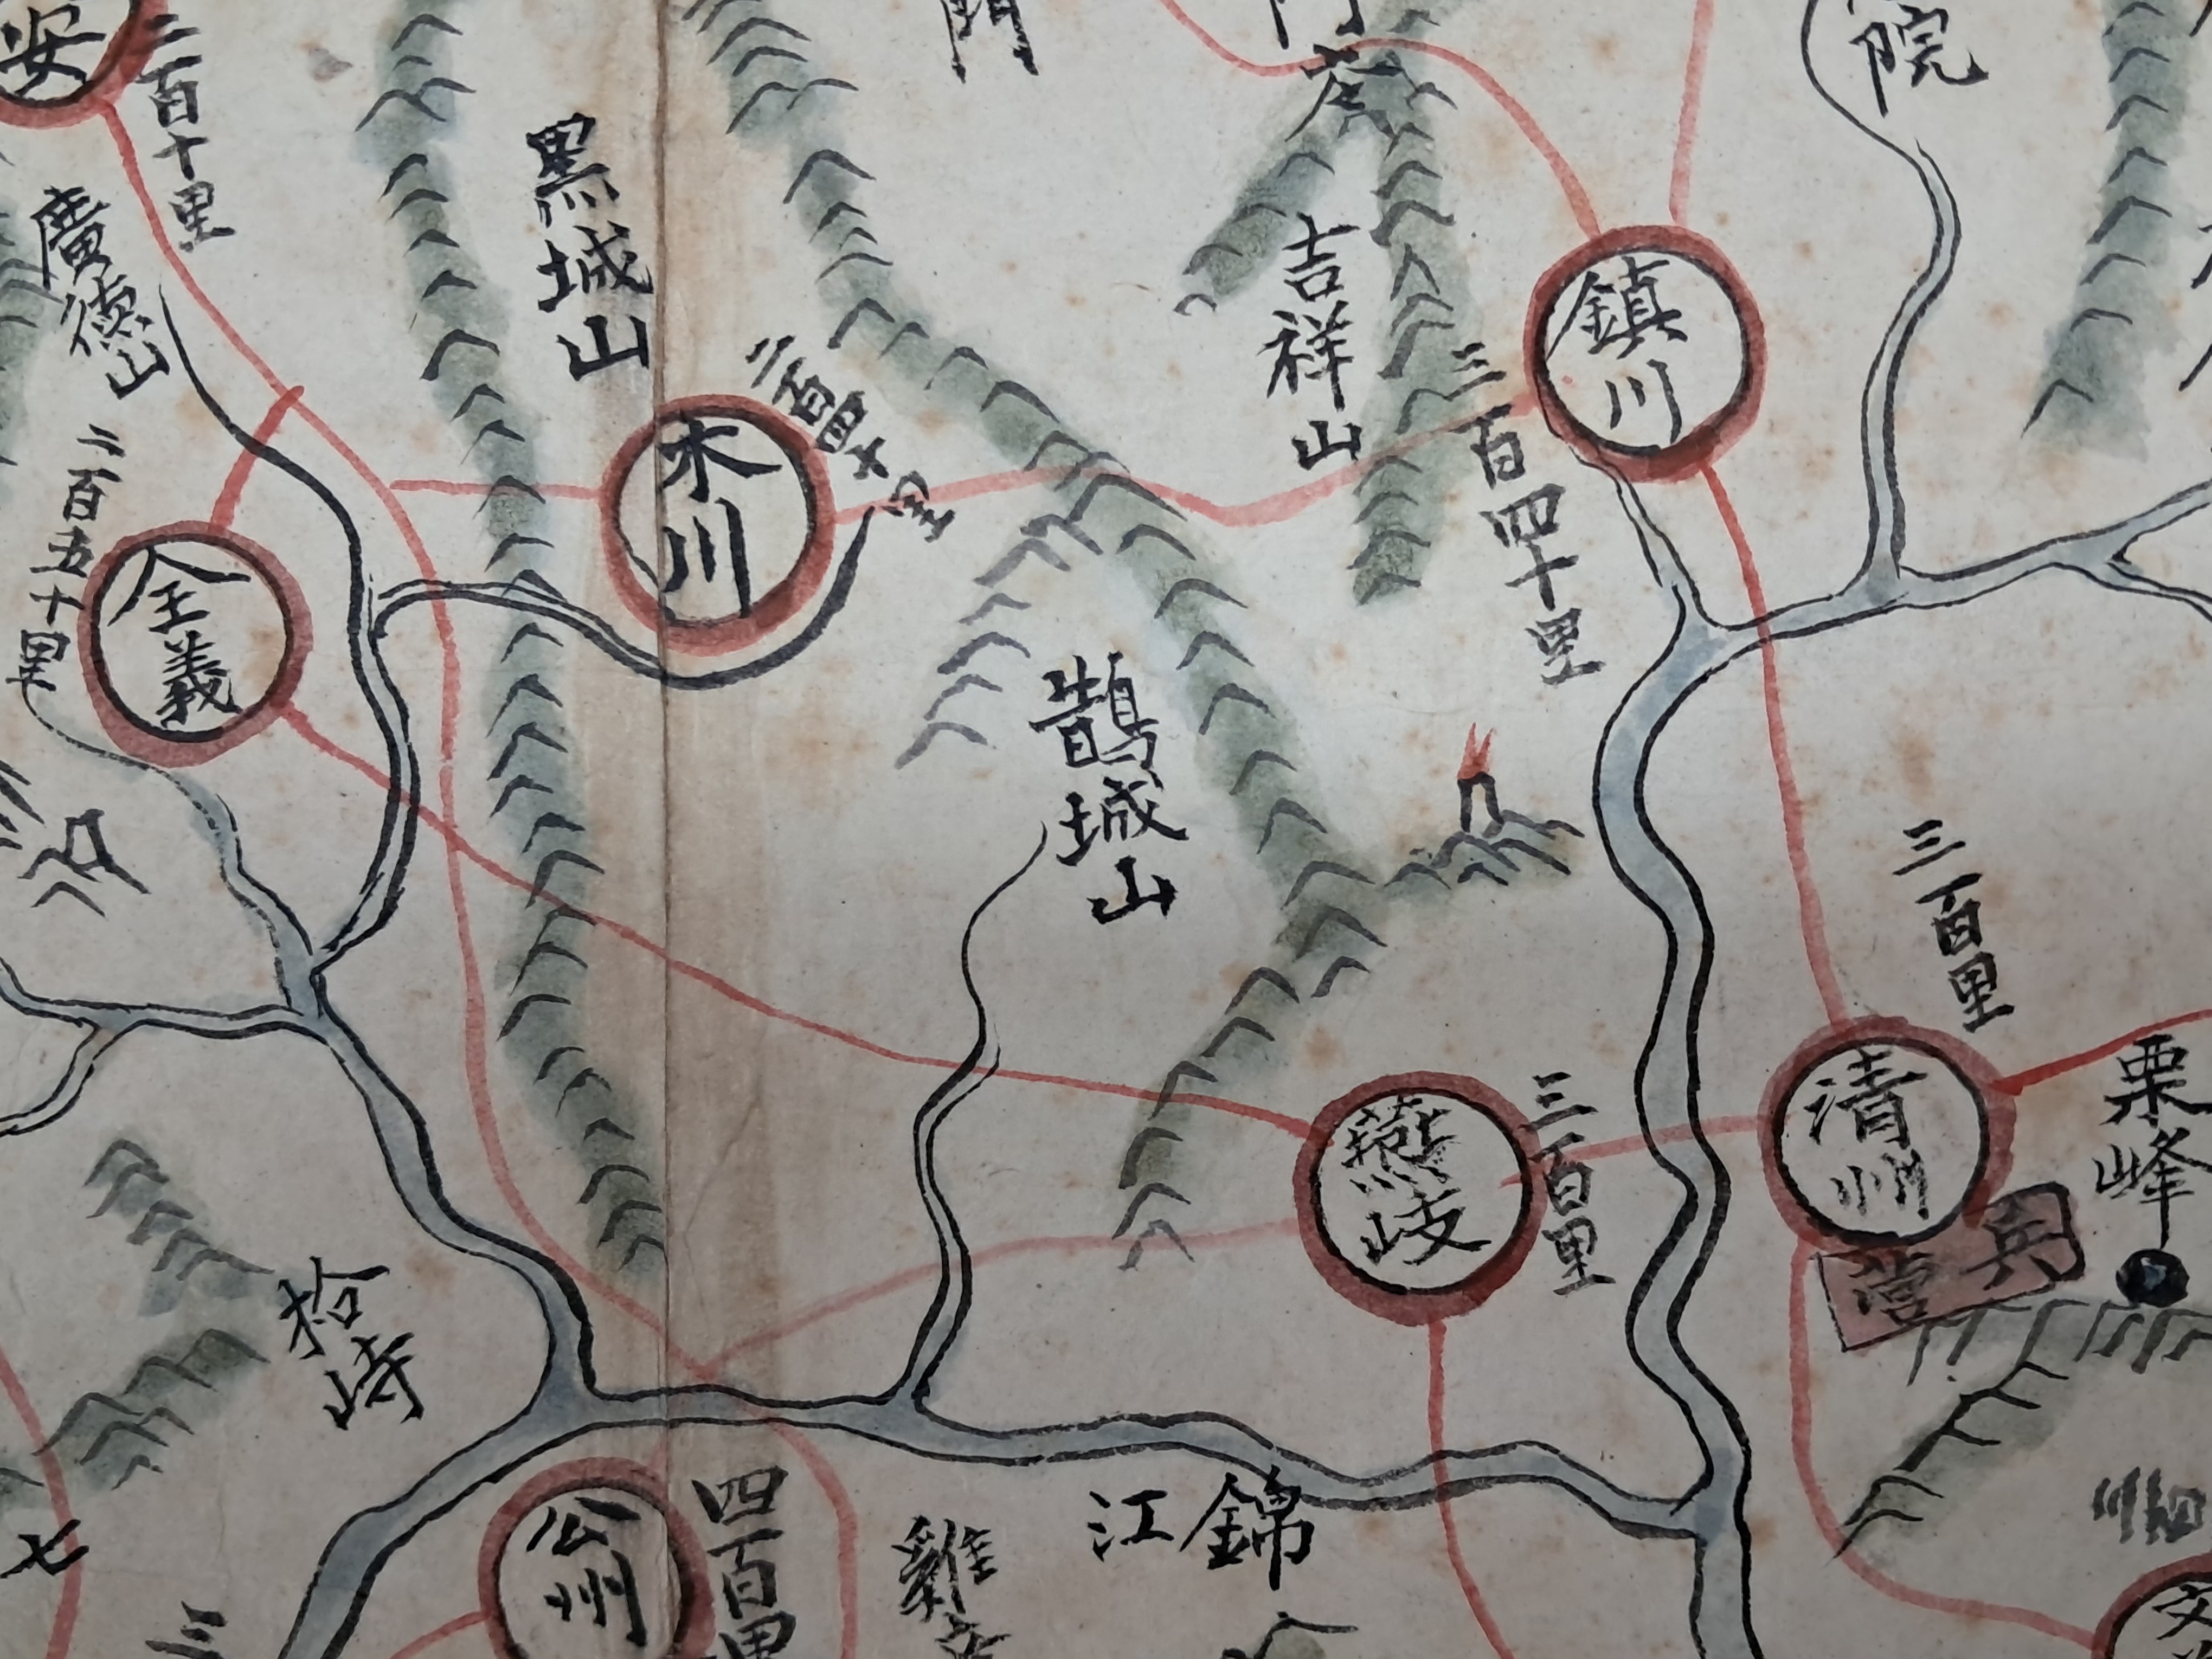 安
二百十里
廣德山
黑城山
門
門
院
吉祥山
鎮川
三百四十里
木川
二百四十里
二百五十里
全義
鵲城山
三百里
清州
兵營
栗峰
燕歧
三百里
拾峙
江錦
公州
四百里
雞
七
三
文